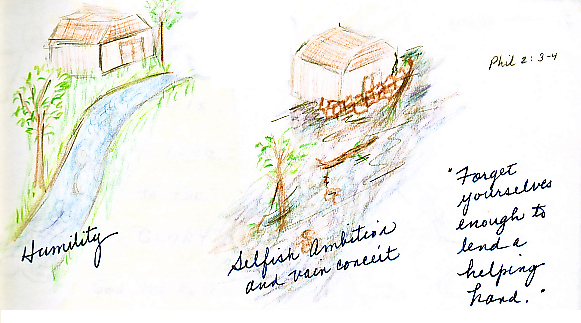 Humility
Selfish Ambition
and vain conceit
Phil 2:3-4
"Forget
yourselves
enough to
lend a
helping
hand."